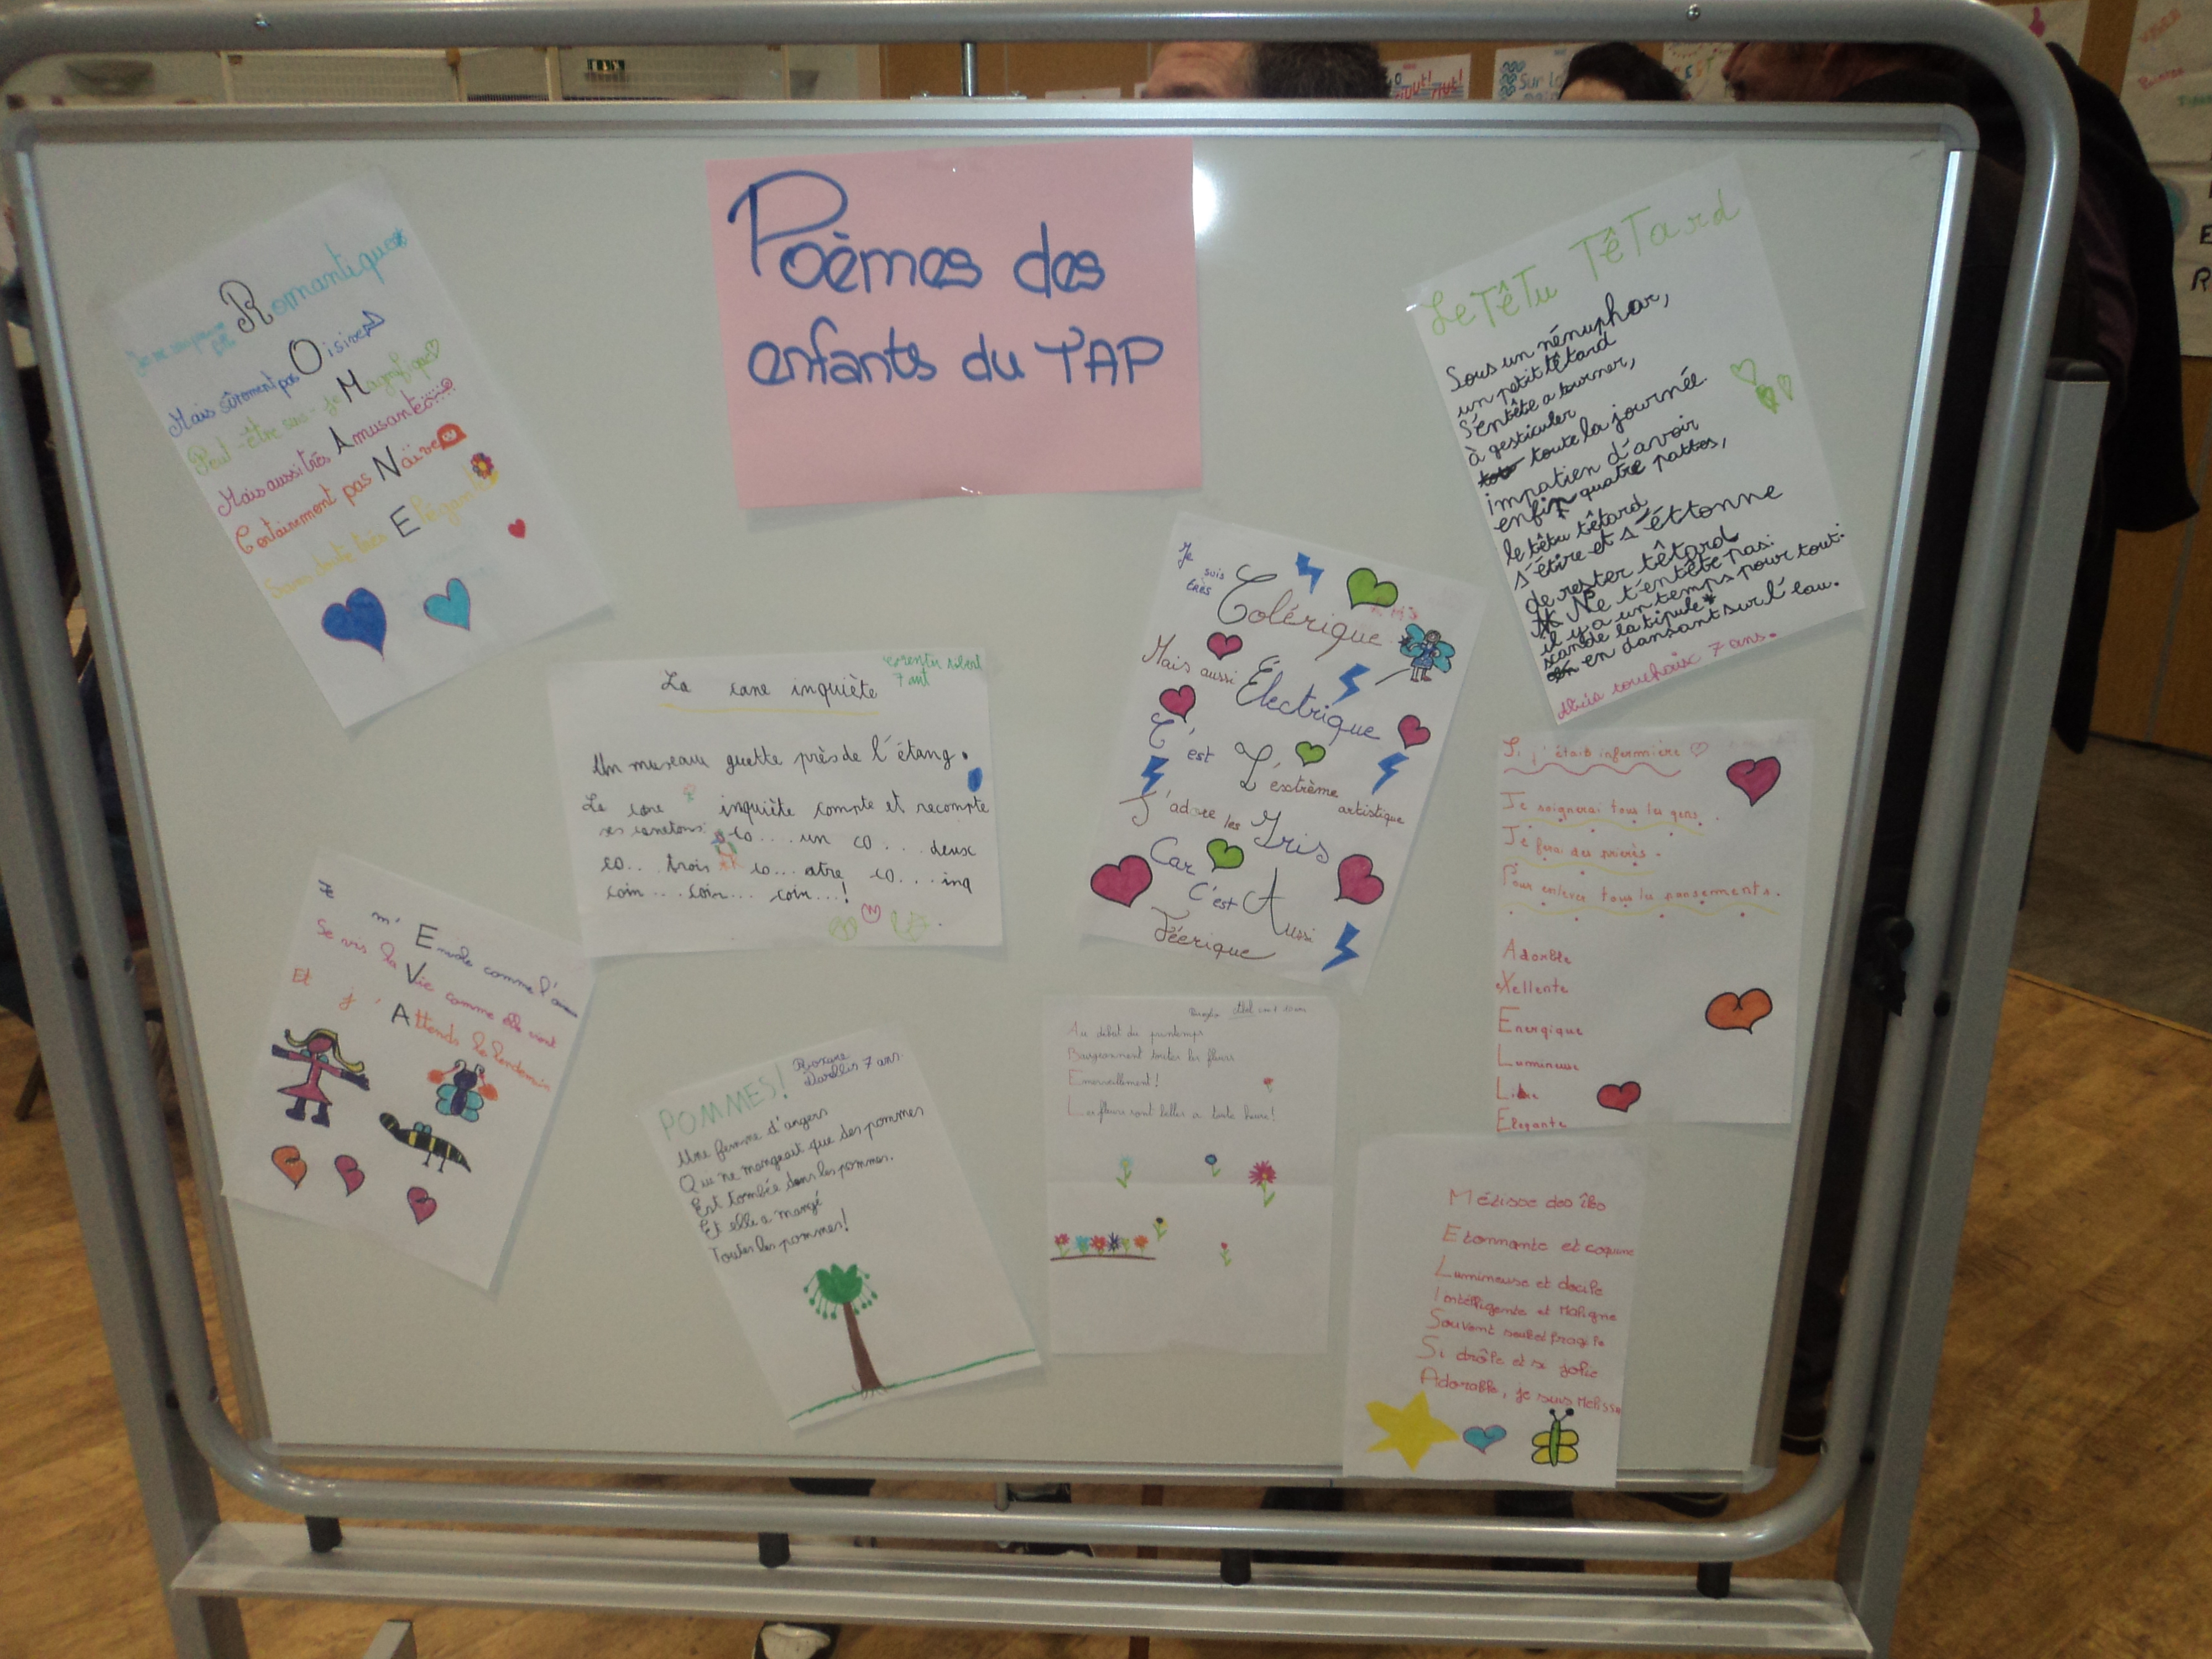 Poèmes des
enfants du TAP
Romantique
Mais sûrement pas Oisive
Peut-être suis-je Magnifique
Mais aussi très Amusante
Certainement pas Naïve
Sans doute très Elégante
Le Têtu Têtard
Sous un nénuphar,
un petit têtard
s'entête a tourner,
à gesticuler
toute la journée
impatien d'avoir
enfin quatre pattes,
le têtu têtard
s'étire et s'éttonne
de rester têtard
Ne t'entête pas:
il y a un temps pour tout.
scande la tipule*
en dansant sur l'eau.
7 ans.
La cane inquiète
7 ant
Un museau guette près de l'étang.
La cane inquiète compte et recompte
ses canetons: co... un co... deux
co... trois co... atre co... inq
coin... coin... coin...!
Je suis très Colérique
Mais aussi Électrique
C'est L'extrème artistique
J'adore les Iris
Car C'est Aussi
Féerique
Si j'étais infermière
Je soignerai tous les gens.
Je ferai des prières.
Pour enlever tous les pansements.
Adorable
eXellente
Energique
Lumineuse
Elegante
Je m'Envole comme l'
Je vis la Vie comme elle vient
Et j'Attends le lendemain
POMMES!
Roxane
7 ans.
Une femme d'angers
Qui ne mangeait que des pommes
Est tombée dans les pommes.
Et elle a mangé
Toutes les pommes!
Au début du printemps
Bourgeonnent toutes les fleurs
Emerveillement!
Les fleurs sont belles a toute heure!
Métisse des îles
Etonnante et coquine
Lumineuse et docile
Intelligente et Maligne
Souvent seule et fragile
Si drôle et si jolie
Adorable, je suis Melissa